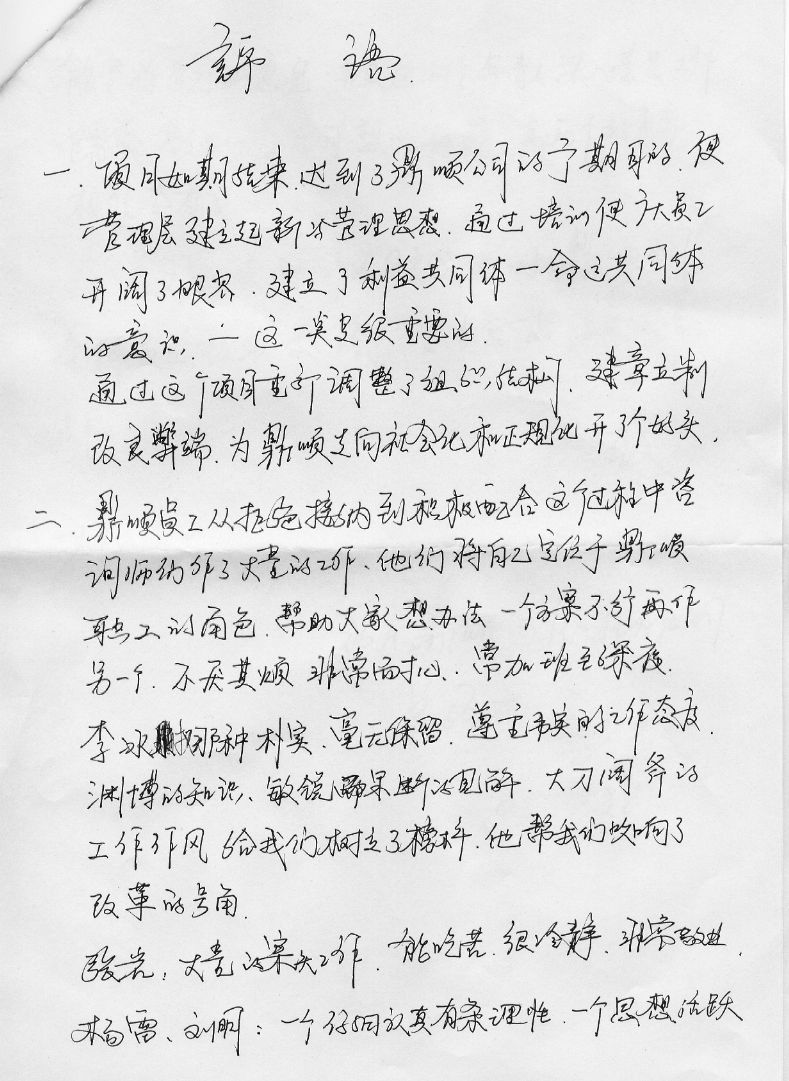 評 语.
一. 项目如期结束. 达到了鼎顺公司的予期目的. 使
管理层建立起新的管理思想. 通过培训使广大员工
开阔了眼界. 建立了利益共同体一命运共同体
的意识. — 这一类是很重要的.
通过这个项目重新调整了组织结构. 建章立制
改良弊端. 为鼎顺走向社会化和正规化开了个好头.
二. 鼎顺员工从拒绝接纳到积极配合这个过程中咨
询师们作了大量的工作、他们将自己定位于鼎顺
职工的角色. 帮助大家想办法 一个方案不行再作
另一个. 不厌其烦 非常耐心. 常加班至深夜.
李冰 那种朴实、毫无保留. 尊重事实的工作态度.
渊博的知识、敏锐 果断的见解. 大刀阔斧的
工作作风 给我们树立了榜样. 他帮我们吹响了
改革的号角.
大量的案头工作. 能吃苦. 很冷静. 非常敬业.
杨雷、刘明: 一个仔细认真有条理性. 一个思想活跃